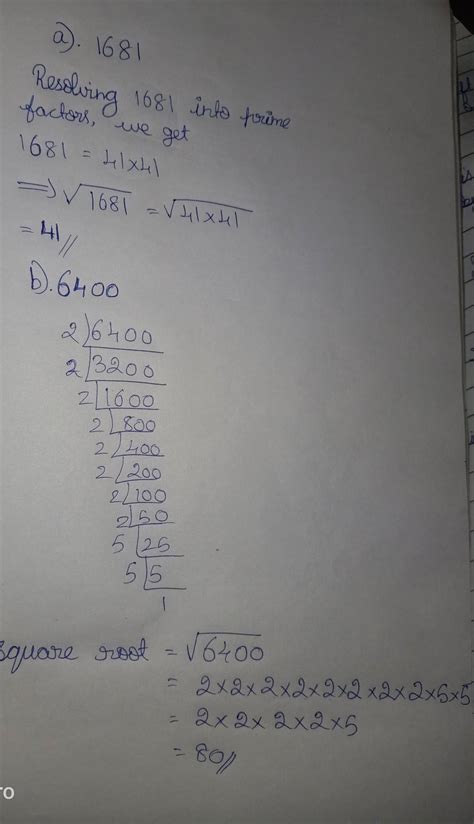 a). 1681
Resolving 1681 into prime
factors, we get
1681 = 41×41
⟹ √1681 = √41×41
= 41//
b). 6400
2)6400
2|3200
2|1600
2|800
2|400
2|200
2|100
2|50
5|25
5|5
1
square root = √6400
= 2×2×2×2×2×2×2×2×5×5
= 2×2×2×2×5
= 80//
ro